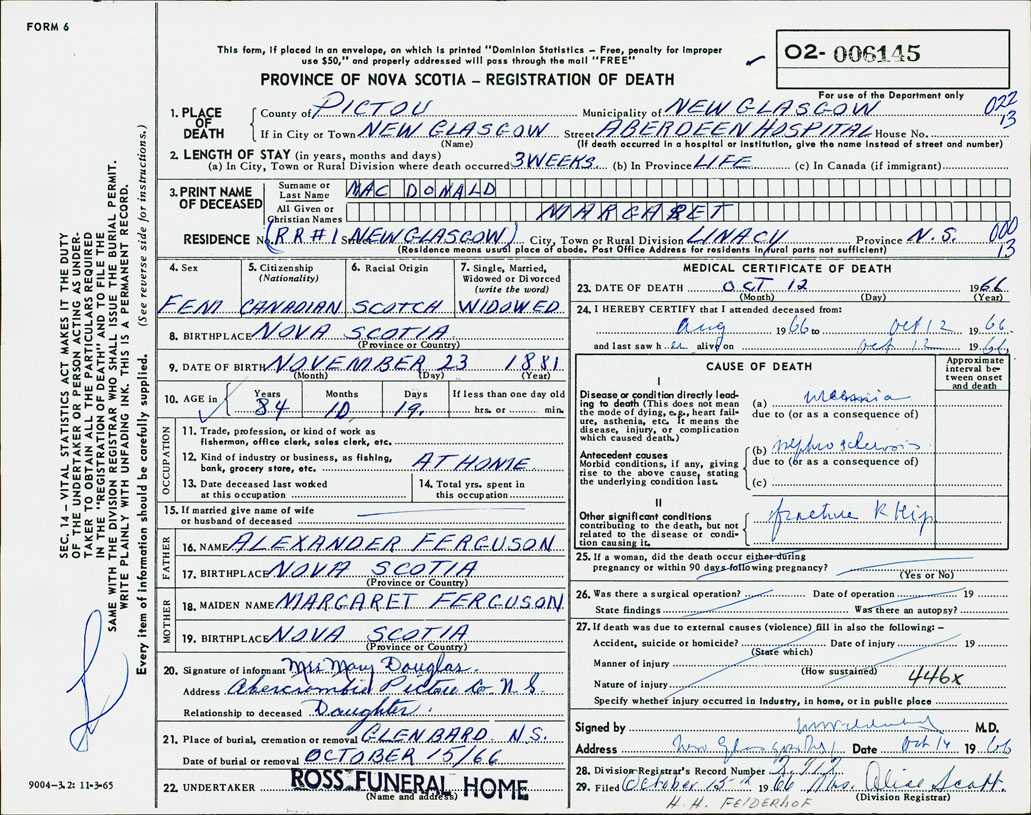 FORM 6
This form, if placed in an envelope, on which is printed "Dominion Statistics – Free, penalty for improper
use $50," and properly addressed will pass through the mail "FREE"
PROVINCE OF NOVA SCOTIA – REGISTRATION OF DEATH
02- 006145
For use of the Department only
022
13
1. PLACE OF DEATH
County of PICTOU Municipality of NEW GLASGOW
If in City or Town NEW GLASGOW Street ABERDEEN HOSPITAL House No.
(Name) (If death occurred in a hospital or institution, give the name instead of street and number)
2. LENGTH OF STAY (in years, months and days)
(a) In City, Town or Rural Division where death occurred 3 WEEKS (b) In Province LIFE (c) In Canada (if immigrant)
3. PRINT NAME OF DECEASED
Surname or Last Name MAC DONALD
All Given or Christian Names MARGARET
RESIDENCE No. (RR#1 Street NEW GLASGOW) City, Town or Rural Division LINACY Province N.S.
000
13
(Residence means usual place of abode. Post Office Address for residents in rural parts not sufficient)
4. Sex FEM
5. Citizenship (Nationality) CANADIAN
6. Racial Origin SCOTCH
7. Single, Married, Widowed or Divorced (write the word) WIDOWED
8. BIRTHPLACE NOVA SCOTIA
(Province or Country)
9. DATE OF BIRTH NOVEMBER 23 1881
(Month) (Day) (Year)
10. AGE in Years 84 Months 10 Days 19. If less than one day old hrs. or min.
OCCUPATION
11. Trade, profession, or kind of work as
fisherman, office clerk, sales clerk, etc.
12. Kind of industry or business, as fishing,
bank, grocery store, etc. AT HOME
13. Date deceased last worked
at this occupation
14. Total yrs. spent in
this occupation
15. If married give name of wife
or husband of deceased
FATHER
16. NAME ALEXANDER FERGUSON
17. BIRTHPLACE NOVA SCOTIA
(Province or Country)
MOTHER
18. MAIDEN NAME MARGARET FERGUSON
19. BIRTHPLACE NOVA SCOTIA
(Province or Country)
20. Signature of informant Mrs Mary Douglas.
Address Abercrombie Pictou Co N S
Relationship to deceased Daughter.
21. Place of burial, cremation or removal GLENBARD N.S.
Date of burial or removal OCTOBER 15/66
22. UNDERTAKER ROSS FUNERAL HOME
(Name and address)
MEDICAL CERTIFICATE OF DEATH
23. DATE OF DEATH OCT 12 1966
(Month) (Day) (Year)
24. I HEREBY CERTIFY that I attended deceased from:
Aug 1966 to Oct 12 1966
and last saw h er alive on Oct 12 1966
CAUSE OF DEATH
Approximate interval between onset and death
I
Disease or condition directly leading to death (This does not mean
the mode of dying, e.g., heart failure, asthenia, etc. It means the
disease, injury, or complication
which caused death.)
(a) uraemia
due to (or as a consequence of)
Antecedent causes
Morbid conditions, if any, giving
rise to the above cause, stating
the underlying condition last.
(b) nephrosclerosis
due to (or as a consequence of)
(c)
II
Other significant conditions
contributing to the death, but not
related to the disease or condition causing it.
fracture R Hip
25. If a woman, did the death occur either during
pregnancy or within 90 days following pregnancy?
(Yes or No)
26. Was there a surgical operation? Date of operation 19
State findings Was there an autopsy?
27. If death was due to external causes (violence) fill in also the following: –
Accident, suicide or homicide? Date of injury 19
(State which)
Manner of injury
(How sustained)
Nature of injury 446x
Specify whether injury occurred in Industry, in home, or in public place
Signed by M.D.
Address New Glasgow Date Oct 14 1966
28. Division Registrar's Record Number
29. Filed October 15th 1966 Mrs. Alice Scott.
(Division Registrar)
H. H. FELDERHOF
SEC. 14 – VITAL STATISTICS ACT MAKES IT THE DUTY
OF THE UNDERTAKER OR PERSON ACTING AS UNDER-
TAKER TO OBTAIN ALL THE PARTICULARS REQUIRED
IN THE "REGISTRATION OF DEATH" AND TO FILE THE
SAME WITH THE DIVISION REGISTRAR WHO SHALL ISSUE THE BURIAL PERMIT.
WRITE PLAINLY WITH UNFADING INK. THIS IS A PERMANENT RECORD.
Every item of information should be carefully supplied. (See reverse side for instructions.)
9004-3.2: 11-3-65